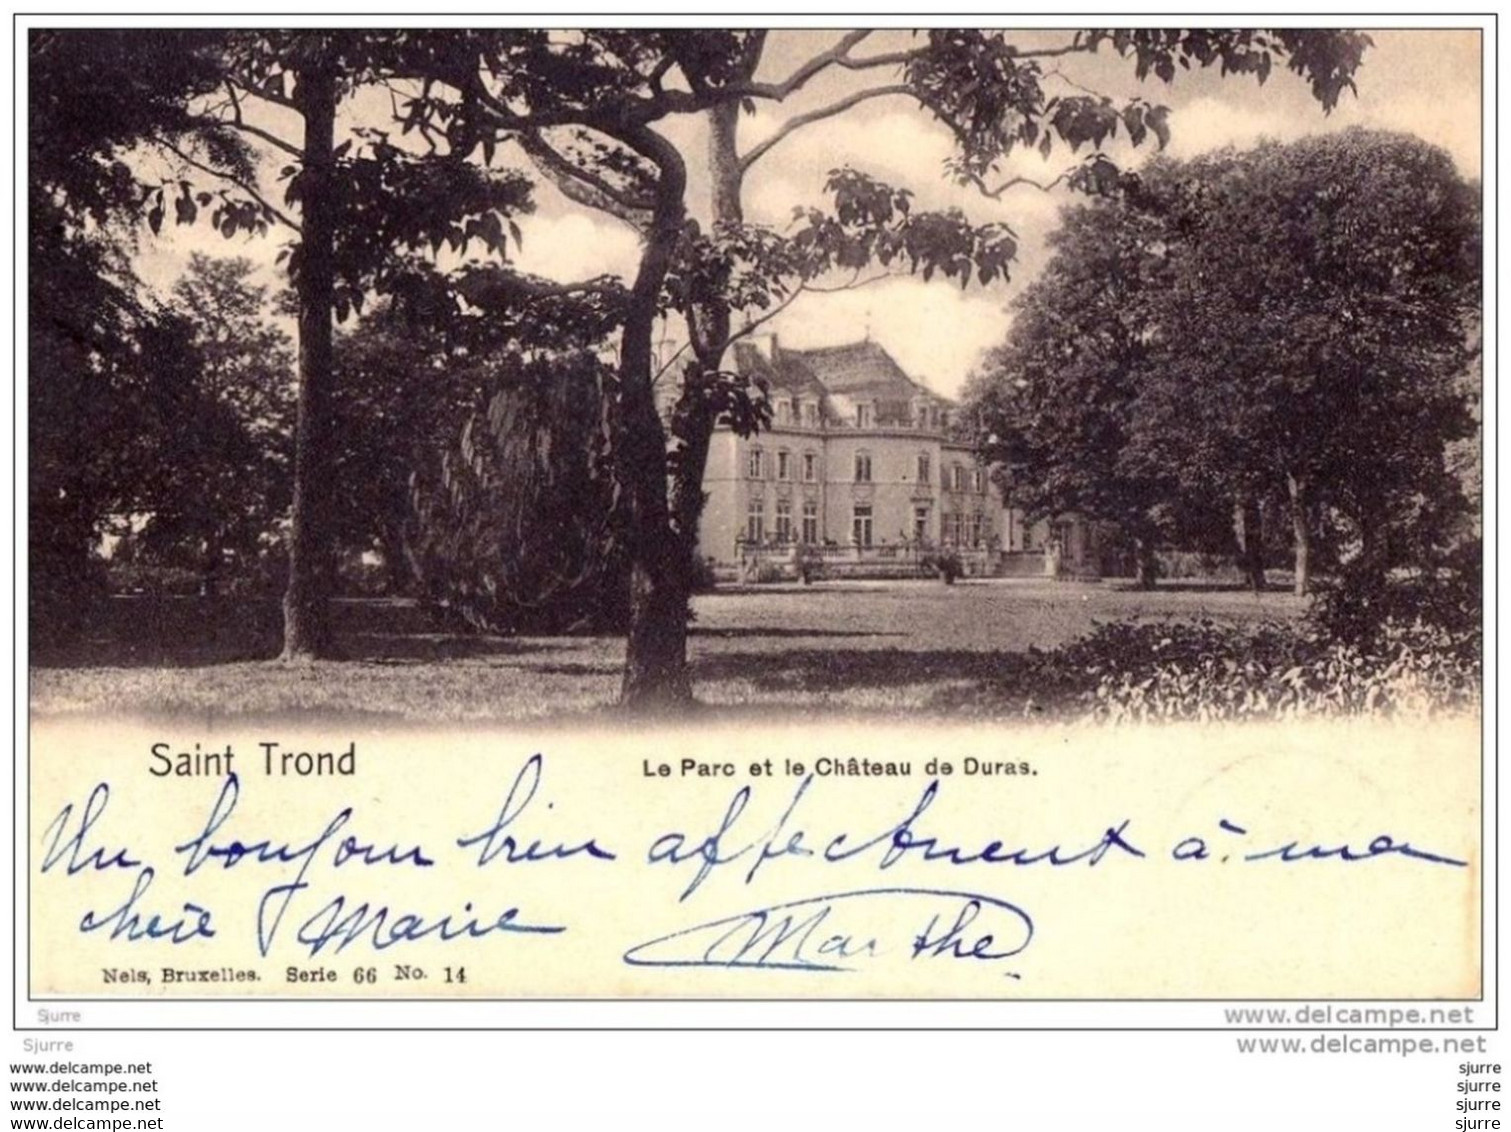 Saint Trond
Le Parc et le Château de Duras.
Un bonjour bien affectueux à ma
chère Marie Marthe
Nels, Bruxelles. Serie 66 No. 14
Sjurre
www.delcampe.net
Sjurre
www.delcampe.net
www.delcampe.net
sjurre
www.delcampe.net
sjurre
www.delcampe.net
sjurre
www.delcampe.net
sjurre